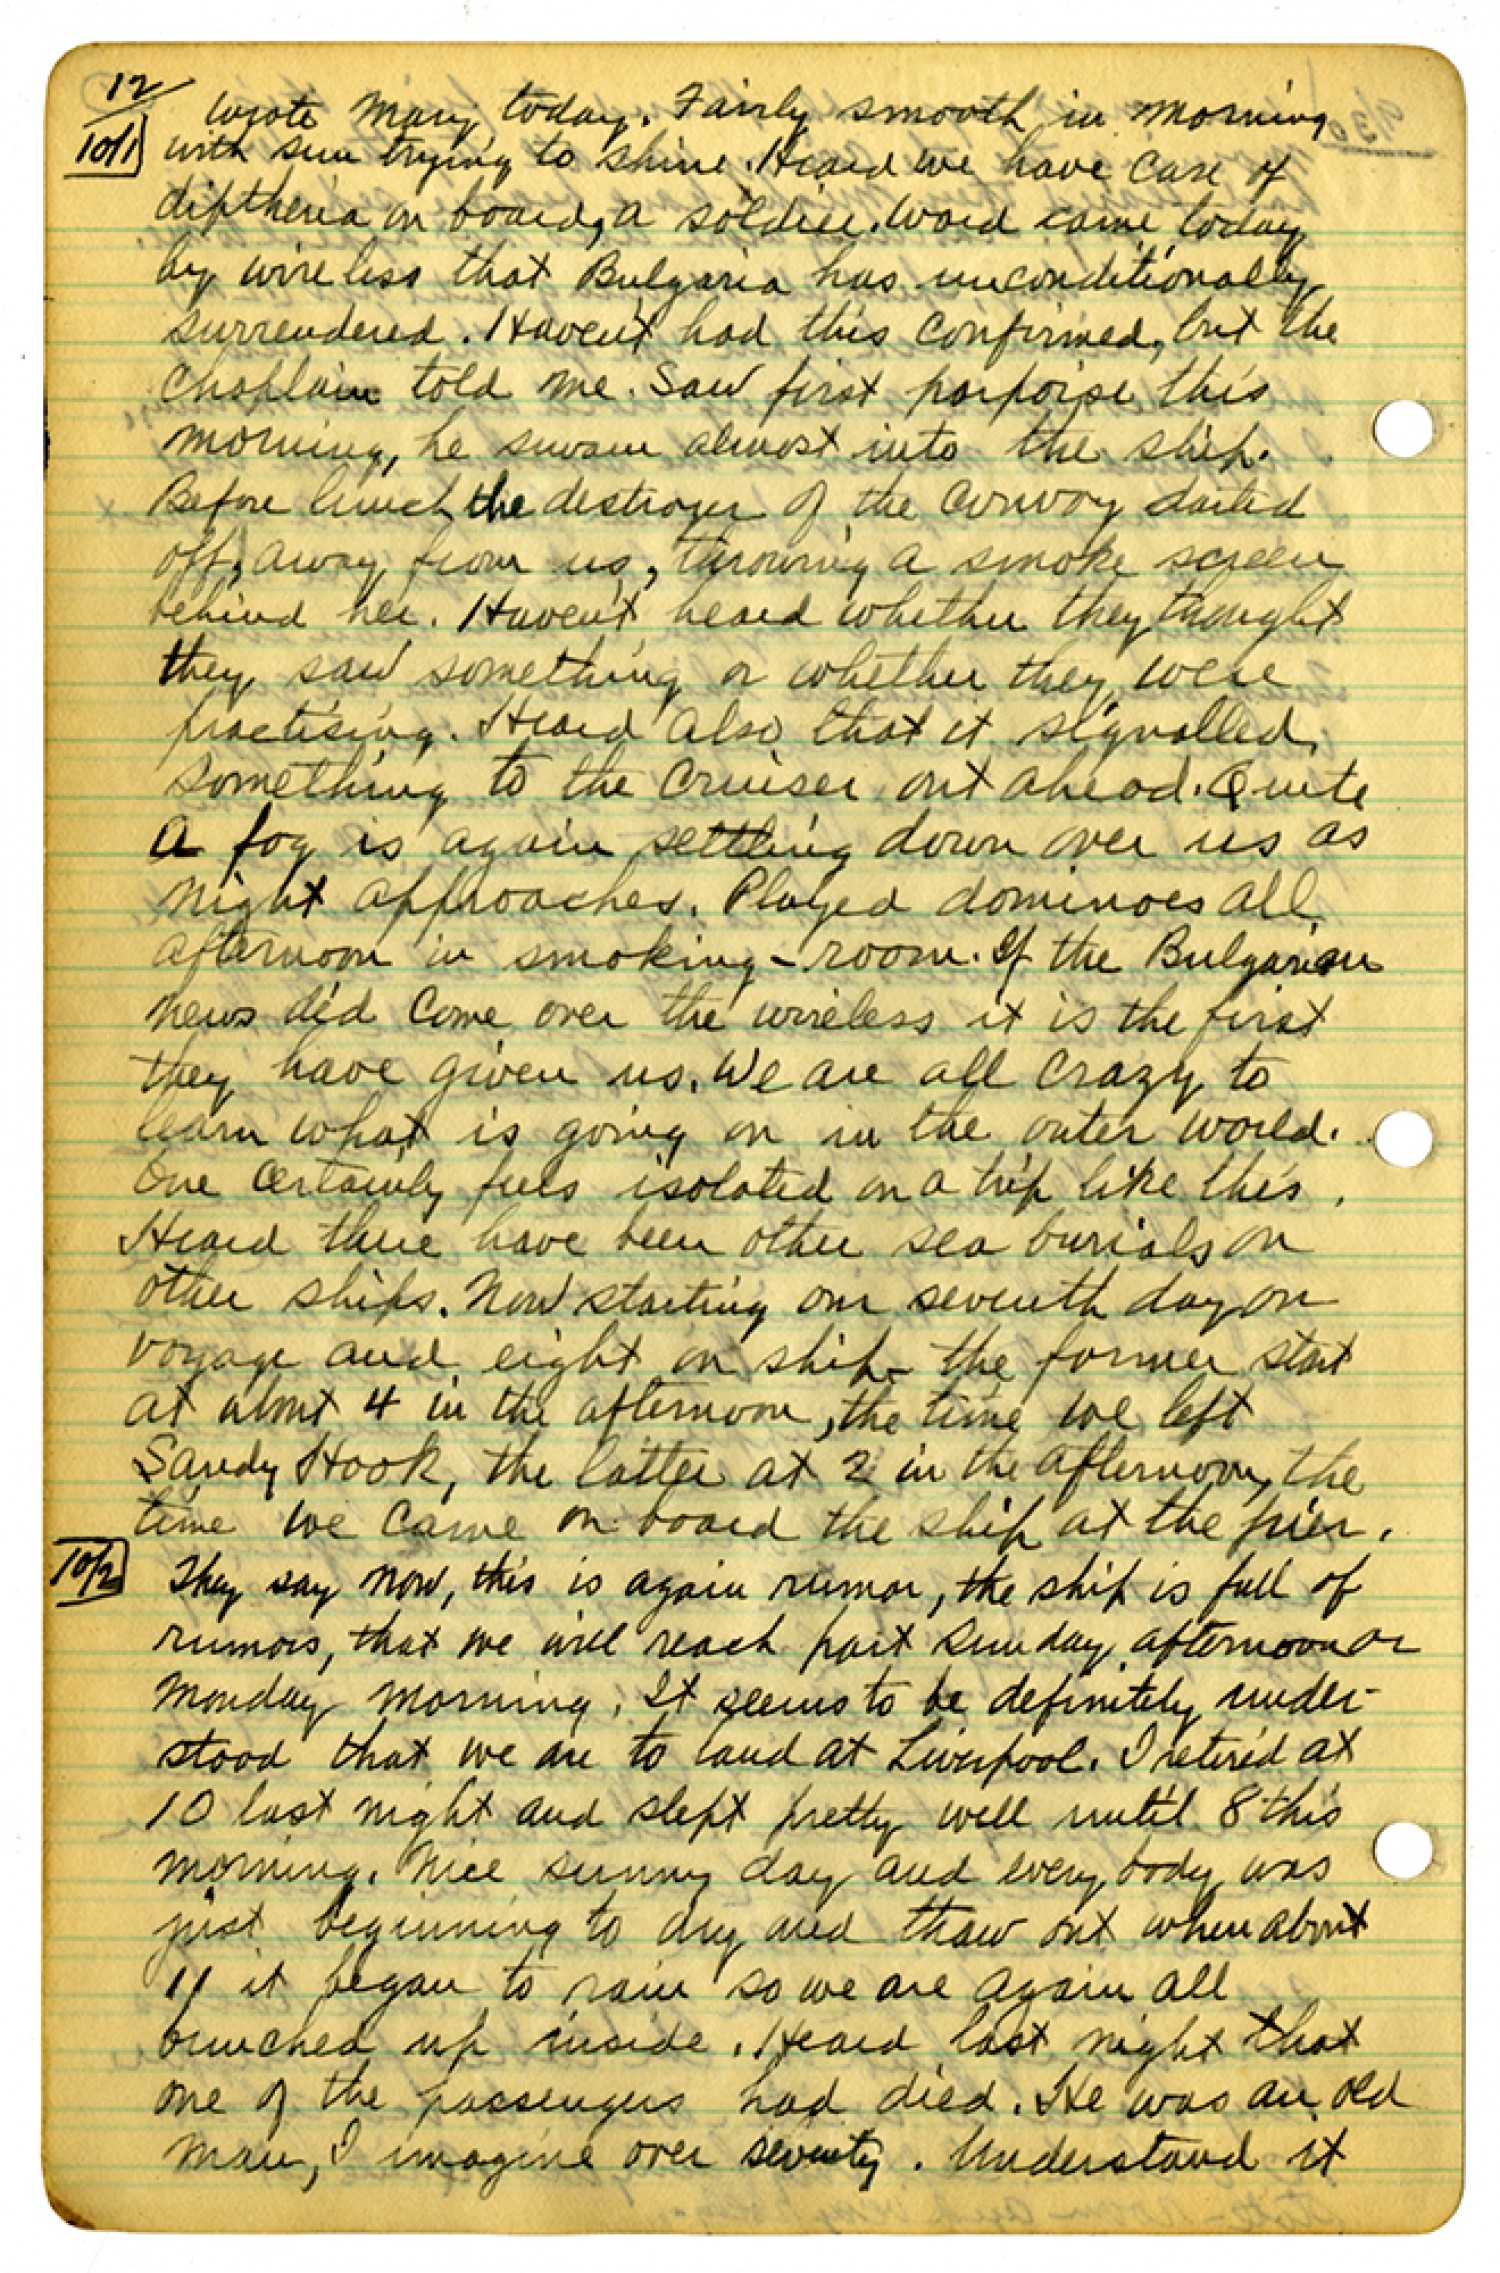 12
10/1
Wrote Mary today. Fairly smooth in morning
with sun trying to shine. Heard we have case of
diptheria on board, a soldier. Word came today
by wireless that Bulgaria has unconditionally
surrendered. Haven't had this confirmed, but the
Chaplain told me. Saw first porpoise this
morning, he swam almost into the ship.
Before lunch the destroyer of the convoy darted
off, away from us, throwing a smoke screen
behind her. Haven't heard whether they thought
they saw something or whether they were
practising. Heard also that it signalled
something to the cruiser out ahead. Quite
a fog is again settling down over us as
night approaches. Played dominoes all
afternoon in smoking-room. If the Bulgarian
news did come over the wireless it is the first
they have given us. We are all crazy to
learn what is going on in the outer world.
One certainly feels isolated on a trip like this.
Heard there have been other sea burials on
other ships. Now starting our seventh day on
voyage and eight on ship - the former start
at about 4 in the afternoon, the time we left
Sandy Hook, the latter at 2 in the afternoon, the
time we came on board the ship at the pier.
10/2
They say now, this is again rumor, the ship is full of
rumors, that we will reach port Sunday afternoon or
Monday morning. It seems to be definitely under-
stood that we are to land at Liverpool. I retired at
10 last night and slept pretty well until 8 this
morning. Nice sunny day and every body was
just beginning to dry and thaw out when about
11 it began to rain so we are again all
bunched up inside. Heard last night that
one of the passengers had died. He was an old
man, I imagine over seventy. Understand it